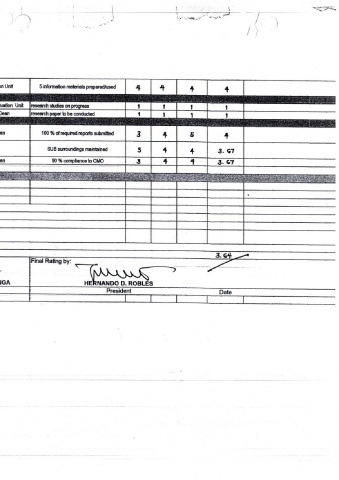 n Unit 5 information materials prepared/used 4 4 4 4
uation Unit research studies on progress 1 1 1 1
Dean research paper to be conducted 1 1 1 1
an 100 % of required reports submitted 3 4 5 4
SUB surroundings maintained 3 4 4 3.67
an 90 % compliance to CMO 3 4 4 3.67
3.64
Final Rating by:
NGA HERNANDO D. ROBLES
President Date